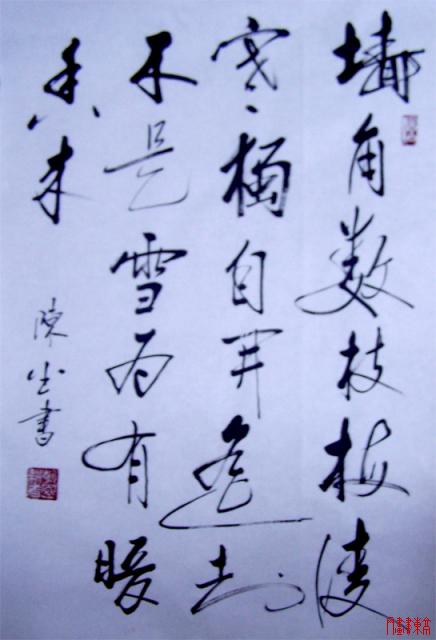 墙角数枝梅凌
寒独自开遥知
不是雪为有暖
香来
陈书